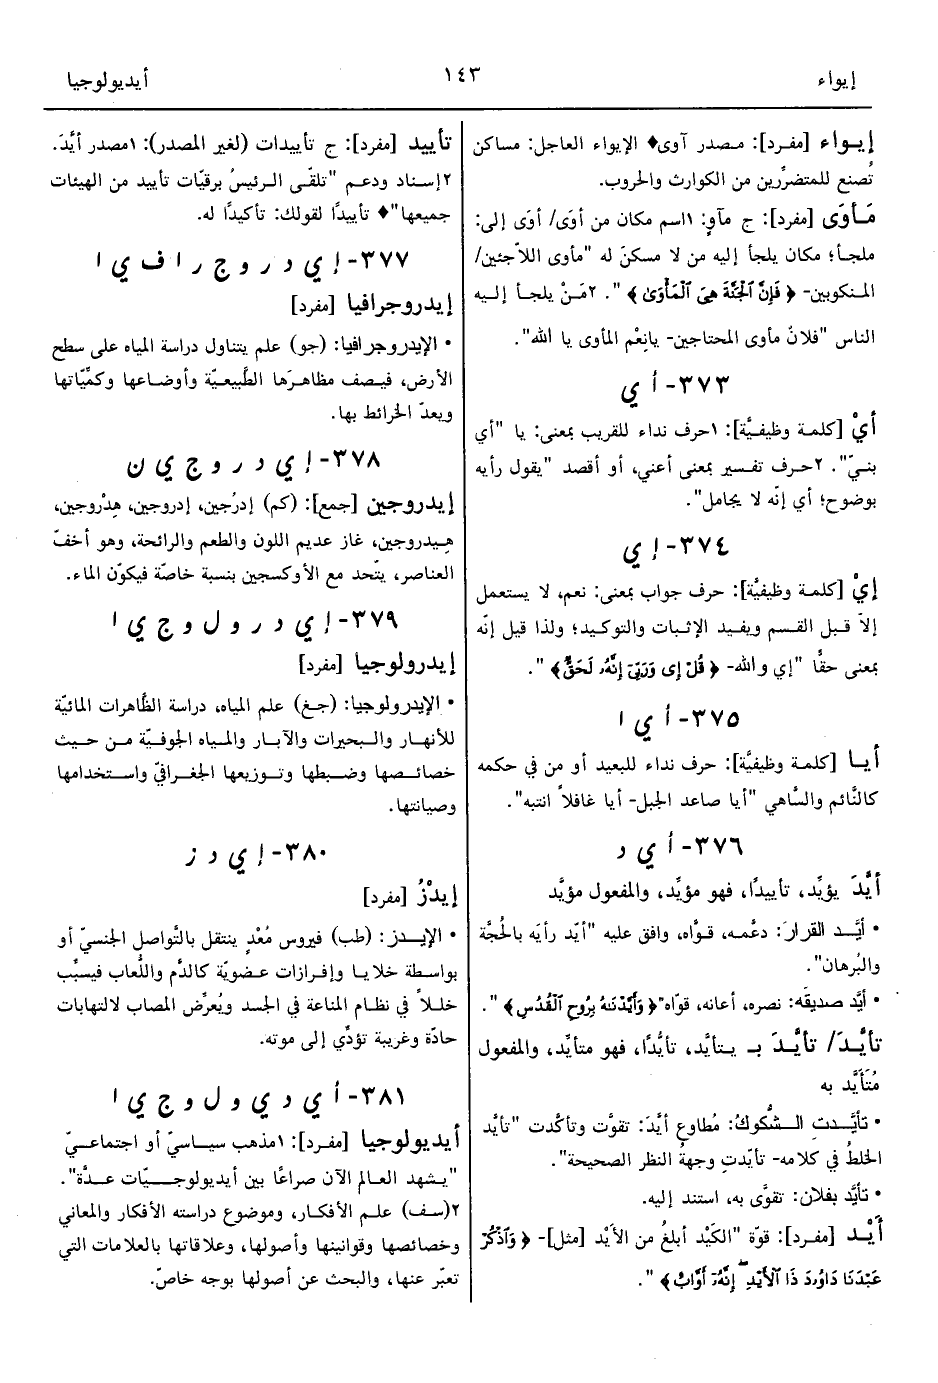 إيواء
١٤٣
أيديولوجيا
إيواء [مفرد]: مصدر آوى♦ الإيواء العاجل: مساكن
تُصنع للمتضرِّرين من الكوارث والحروب.
مَأوَى [مفرد]: ج مآوٍ: ١اسم مكان من أوَى/ أوَى إلى:
ملجأ؛ مكان يلجأ إليه من لا مسكنَ له "مأوى اللاّجئين/
المنكوبين- ﴿ فَإِنَّ ٱلْجَنَّةَ هِىَ ٱلْمَأْوَىٰ ﴾ ". ٢مَنْ يلجأ إليه
الناس "فلانٌ مأوى المحتاجين- يانِعْم المأوى يا الله".
٣٧٣- أ ي
أيْ [كلمة وظيفيَّة]: ١حرف نداء للقريب بمعنى: يا "أي
بنيّ". ٢حرف تفسير بمعنى أعني، أو أقصد "يقول رأيه
بوضوح؛ أي إنّه لا يجامل".
٣٧٤- إ ي
إيْ [كلمة وظيفيَّة]: حرف جواب بمعنى: نعم، لا يستعمل
إلاّ قبل القسم ويفيد الإثبات والتوكيد؛ ولذا قيل إنّه
بمعنى حقًّا "إي والله- ﴿ قُلْ إِى وَرَبِّىٓ إِنَّهُۥ لَحَقٌّ ﴾ ".
٣٧٥- أ ي ا
أيا [كلمة وظيفيَّة]: حرف نداء للبعيد أو من في حكمه
كالنَّائم والسَّاهي "أيا صاعد الجبل- أيا غافلاً انتبه".
٣٧٦- أ ي د
أيَّدَ يؤيِّد، تأييدًا، فهو مؤيِّد، والمفعول مؤيَّد
• أيَّد القرارَ: دعَّمه، قوَّاه، وافق عليه "أيّد رأيه بالحُجَّة
والبُرهان".
• أيَّد صديقَه: نصره، أعانه، قوّاه"﴿ وَأَيَّدْنَٰهُ بِرُوحِ ٱلْقُدُسِ ﴾ ".
تأيَّدَ/ تأيَّدَ بـ يتأيَّد، تأيُّدًا، فهو متأيِّد، والمفعول
مُتَأيَّد به
• تأيَّدتِ الشُّكوكُ: مُطاوع أيَّدَ: تقوَّت وتأكَّدت "تأيَّد
الخلطُ في كلامه- تأيّدتِ وجهةُ النظر الصحيحة".
• تأيَّد بفلان: تقوَّى به، استند إليه.
أَيْد [مفرد]: قوّة "الكَيْد أبلغُ من الأَيْد [مثل]- ﴿ وَٱذْكُرْ
عَبْدَنَا دَاوُۥدَ ذَا ٱلْأَيْدِ ۖ إِنَّهُۥٓ أَوَّابٌ ﴾ ".
تأييد [مفرد]: ج تأييدات (لغير المصدر): ١مصدر أيَّدَ.
٢إسناد ودعم "تلقى الرئيسُ برقيّات تأييد من الهيئات
جميعها"♦ تأييدًا لقولك: تأكيدًا له.
٣٧٧- إ ي د ر و ج ر ا ف ي ا
إيدروجرافيا [مفرد]
• الإيدروجرافيا: (جو) علم يتناول دراسة المياه على سطح
الأرض، فيصف مظاهرَها الطَّبيعيّة وأوضاعها وكمِّيّاتها
ويعدّ الخرائط بها.
٣٧٨- إ ي د ر و ج ي ن
إيدروجين [جمع]: (كم) إدرُجين، إدروجين، هِدْروجين،
هِيدروجين، غاز عديم اللون والطعم والرائحة، وهو أخفّ
العناصر، يتّحد مع الأوكسجين بنسبة خاصّة فيكوّن الماء.
٣٧٩- إ ي د ر و ل و ج ي ا
إيدرولوجيا [مفرد]
• الإيدرولوجيا: (جغ) علم المياه، دراسة الظَّاهرات المائيّة
للأنهار والبحيرات والآبار والمياه الجوفيّة من حيث
خصائصها وضبطها وتوزيعها الجغرافيّ واستخدامها
وصيانتها.
٣٨٠- إ ي د ز
إيدْزُ [مفرد]
• الإيدز: (طب) فيروس مُعْدٍ ينتقل بالتَّواصل الجنسيّ أو
بواسطة خلايا وإفرازات عضويّة كالدَّم واللُّعاب فيسبِّب
خللاً في نظام المناعة في الجسد ويُعرِّض المصاب لالتهابات
حادّة وغريبة تؤدِّي إلى موته.
٣٨١- أ ي د ي و ل و ج ي ا
أيديولوجيا [مفرد]: ١مذهب سياسيّ أو اجتماعيّ
"يشهد العالم الآن صراعًا بين أيديولوجيّات عدَّة".
٢(سف) علم الأفكار، وموضوع دراسته الأفكار والمعاني
وخصائصها وقوانينها وأصولها، وعلاقاتها بالعلامات التي
تعبّر عنها، والبحث عن أصولها بوجه خاصّ.